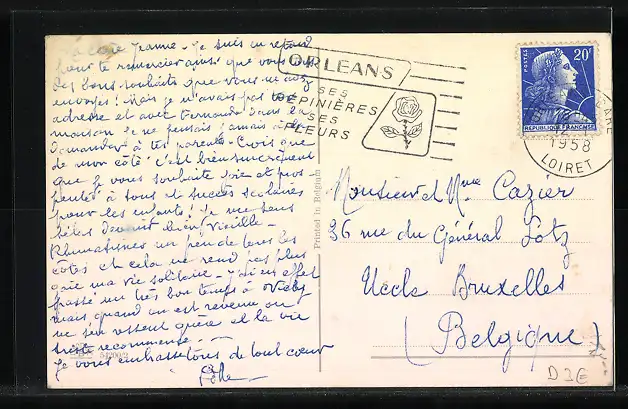 Ma chère Jeanne. Je suis en retard
pour te remercier ainsi que vous tous
des bons souhaits que vous m'avez
envoyés! Mais je n'avais pas ton
adresse et avec Fernande dans la
maison je ne pensais jamais à la
demander à tes parents. Crois que
de mon côté c'est bien sincèrement
que je vous souhaite joie et pros
périté à tous et succès scolaires
pour les enfants! Je me sens
hélas devenir bien vieille.
Rhumatismes un peu de tous les
côtés et cela ne rend pas plus
gaie ma vie solitaire. J'ai en effet
passé un très bon temps à Vichy
mais quand on est revenu on
ne s'en ressent guère et la vie
triste recommence.
Je vous embrasse tous de tout cœur
ORLEANS
SES
PÉPINIÈRES
SES
FLEURS
POSTES
20F
REPUBLIQUE FRANÇAISE
GARE
1958
LOIRET
Printed in Belgium
Monsieur et Mme Cazier
36 rue du Général Lotz
Uccle Bruxelles
(Belgique)
D 3E